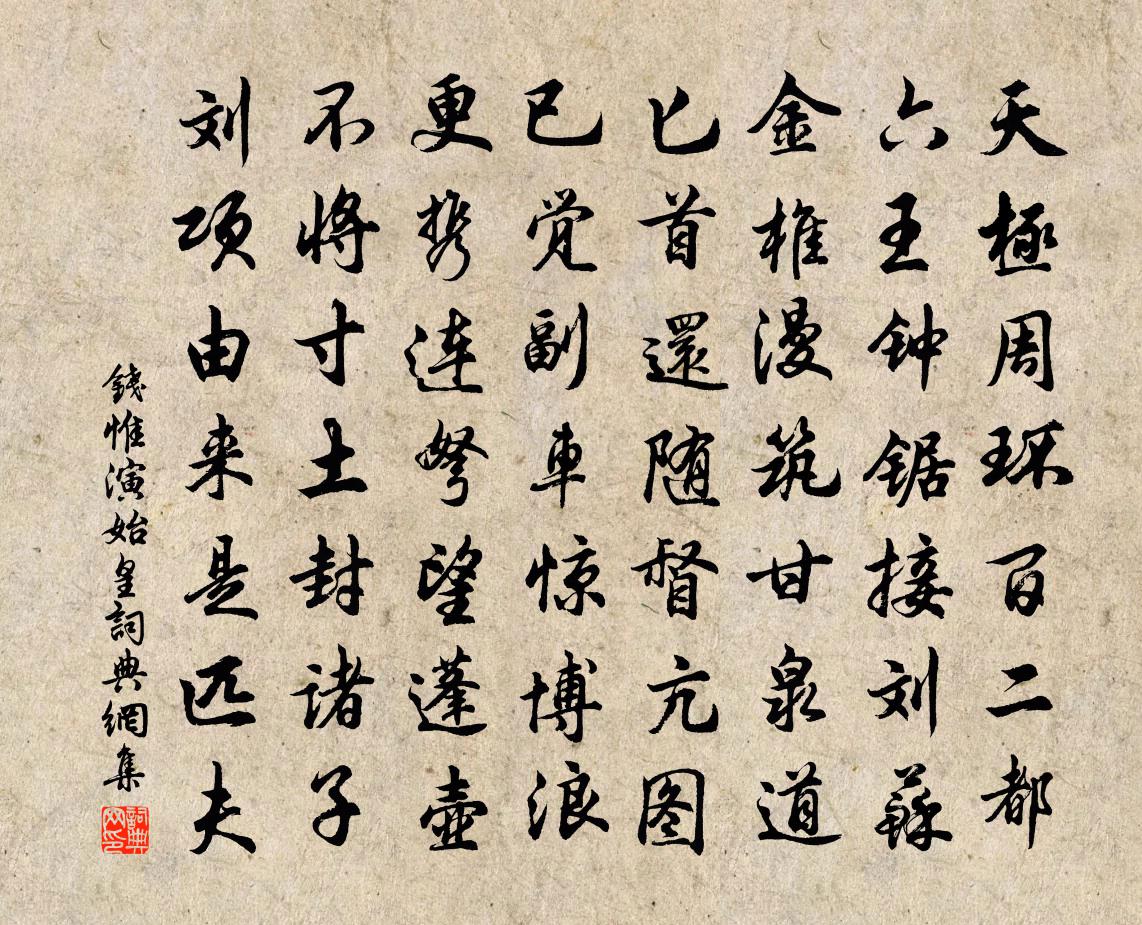 天極周环百二都
六王钟锯接刘蘇
金椎漫筑甘泉道
匕首還随督亢图
已觉副車惊博浪
更携连弩望蓬壶
不将寸土封诸子
刘项由来是匹夫
錢惟演始皇詞典網集
詞典网印